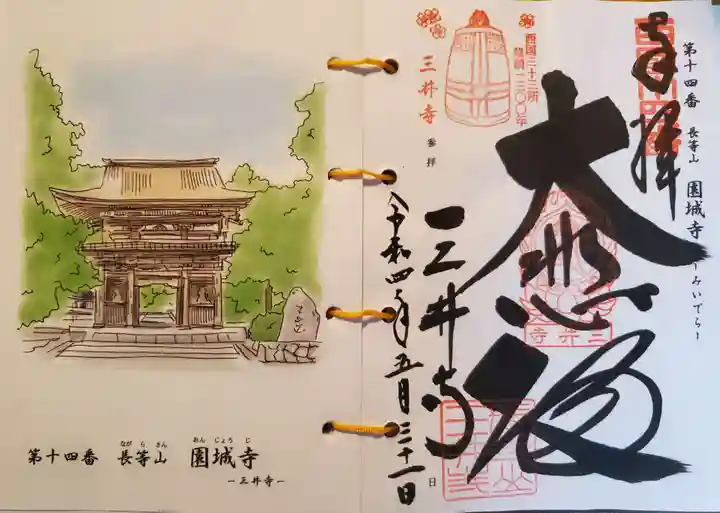 奉拝
第十四番 長等山 園城寺 ーみいでらー
西国三十三所
草創一三〇〇年
大悲殿
三井寺
三井寺
参拝
三井寺
令和四年五月三十一日
ながらさん おんじょうじ
第十四番 長等山 園城寺
ー三井寺ー